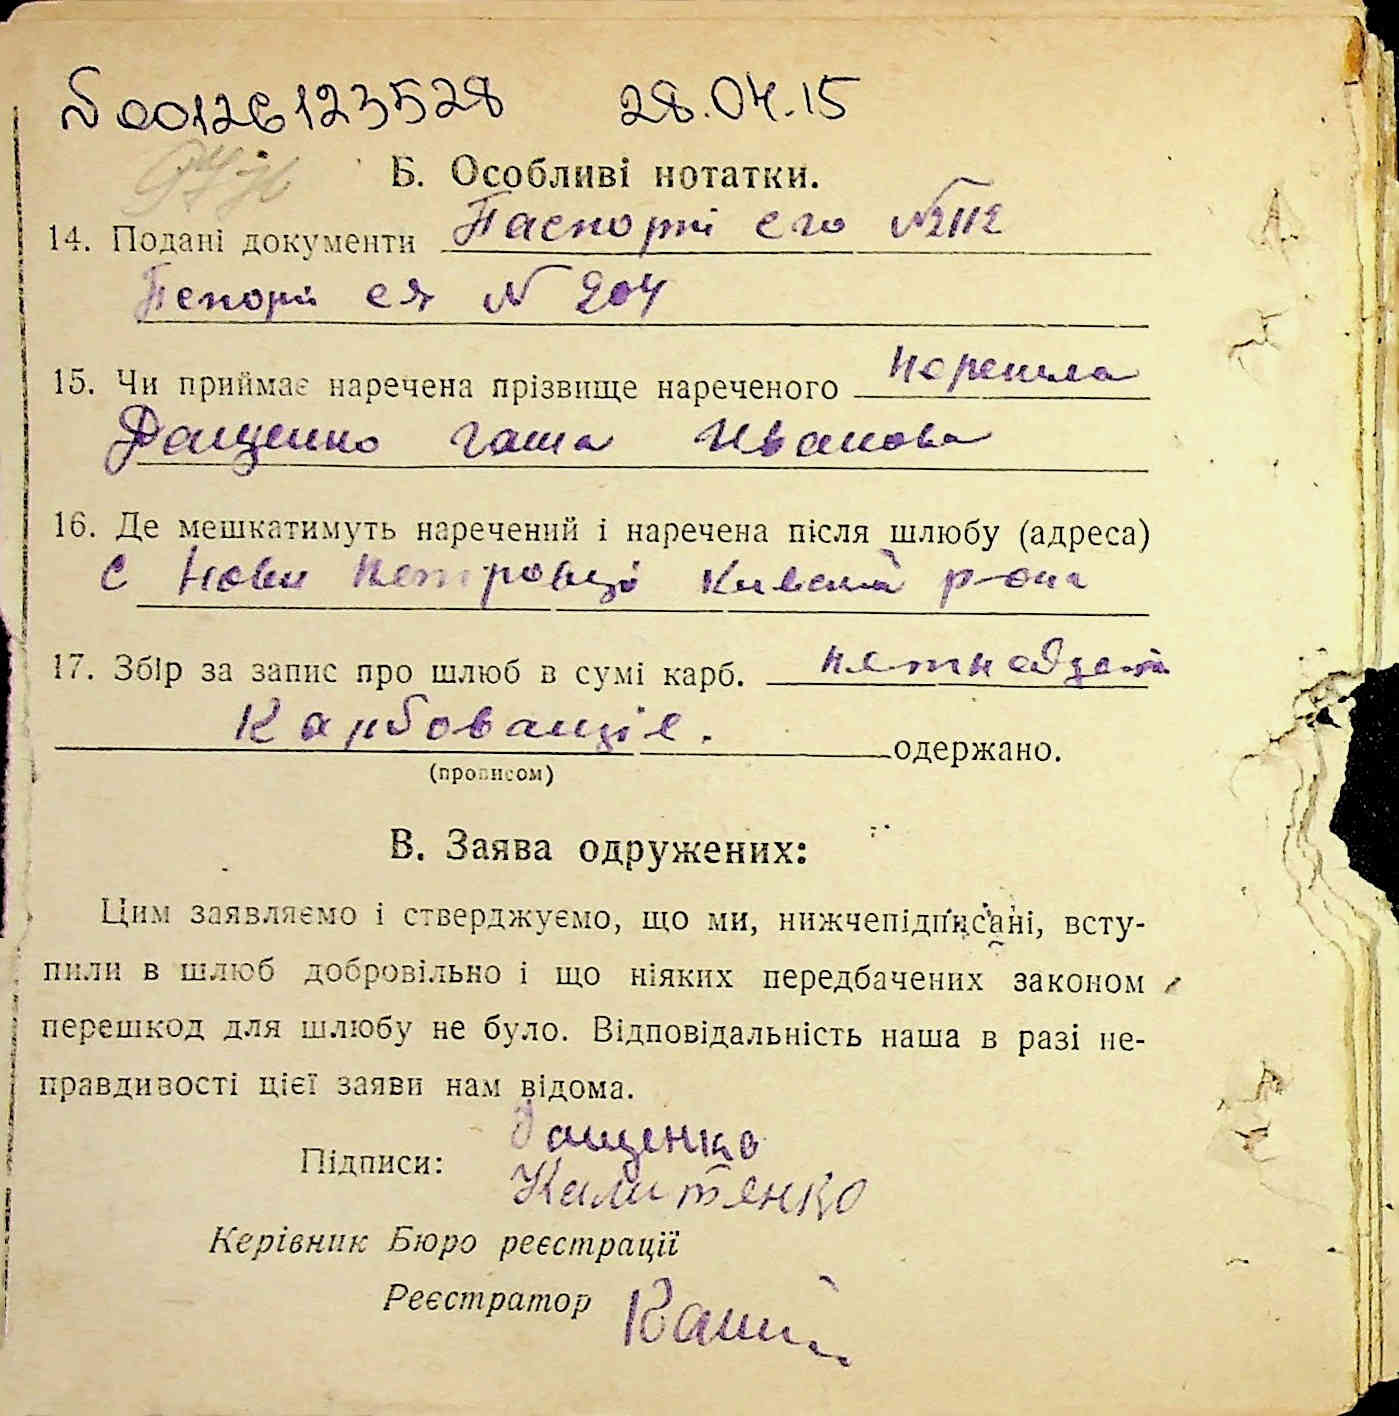 №00126123528 28.04.15
Б. Особливі нотатки.
14. Подані документи Паспорті его №2112
ея № 204
15. Чи приймає наречена прізвище нареченого
Дащенко Гаша Иванова
16. Де мешкатимуть наречений і наречена після шлюбу (адреса)
С Нови Петровці р-она
17. Збір за запис про шлюб в сумі карб.
Карбованціе. одержано.
(прописом)
В. Заява одружених:
Цим заявляємо і стверджуємо, що ми, нижчепідписані, всту-
пили в шлюб добровільно і що ніяких передбачених законом
перешкод для шлюбу не було. Відповідальність наша в разі не-
правдивості цієї заяви нам відома.
Підписи: Дащенко
Калитенко
Керівник Бюро реєстрації
Реєстратор